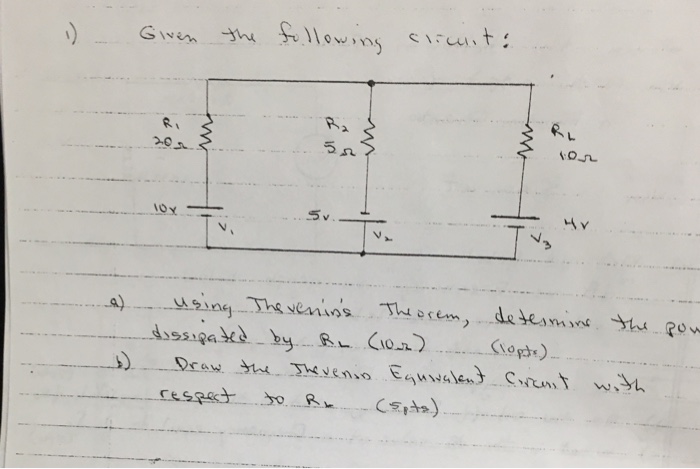 1) Given the following circuit:
R1 R2 RL
20Ω 5Ω 10Ω
10v 5v 4v
V1 V2 V3
a) Using Thevenin's Theorem, determine the pow
dissipated by RL (10Ω) (10pts)
b) Draw the Thevenin Equivalent Circuit with
respect to RL (5pts)